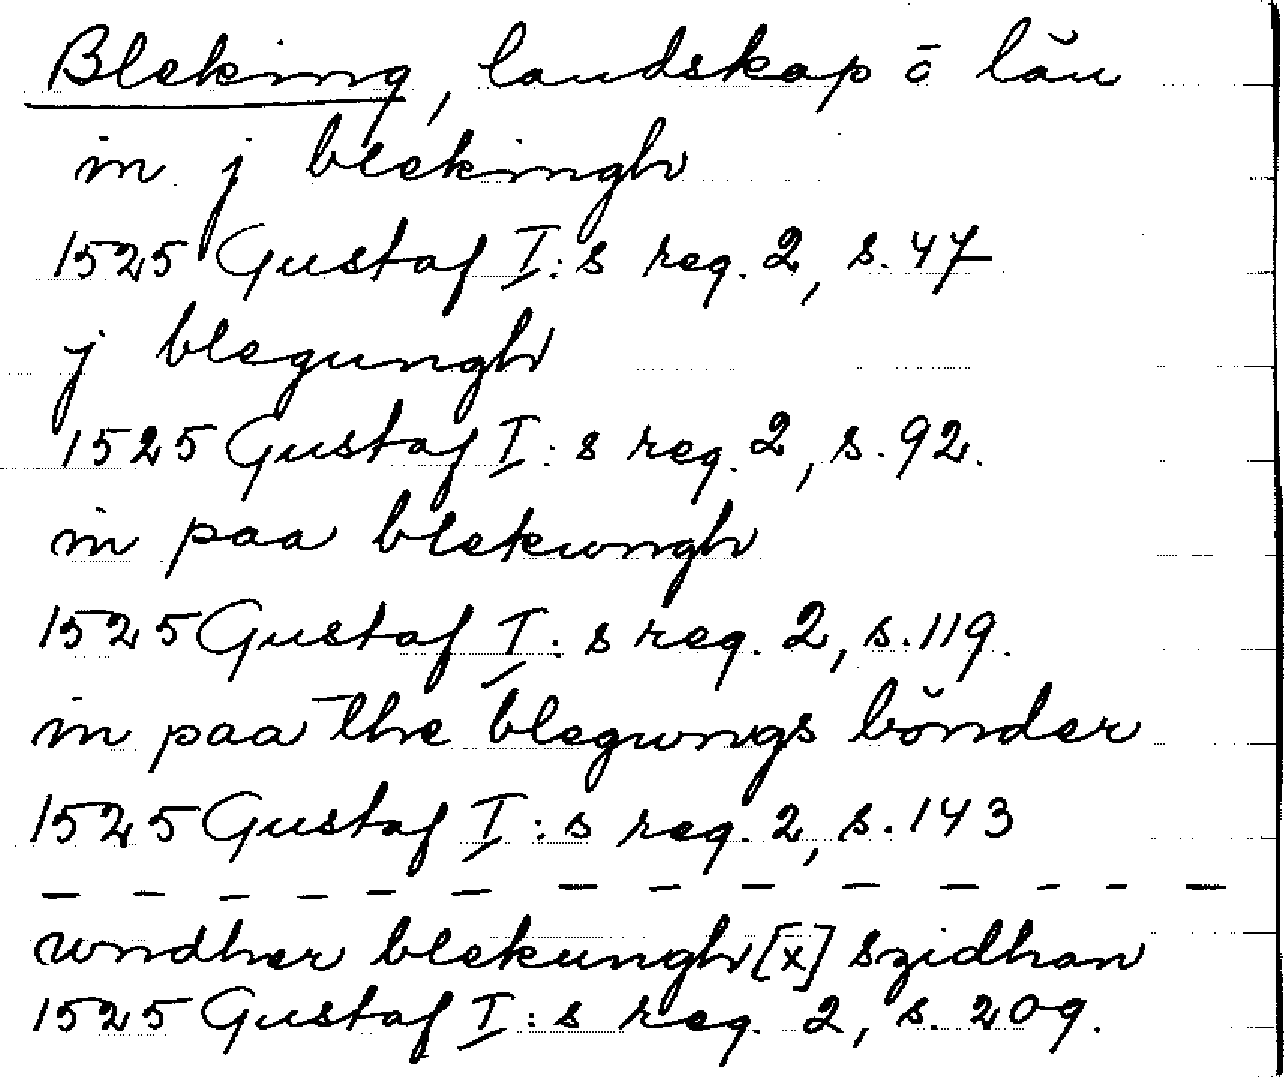 Bleking, landskap ō län
in j blekingh
1525 Gustaf I:s reg. 2, s. 47
j blegungh
1525 Gustaf I:s reg. 2, s. 92.
in paa blekwngh
1525 Gustaf I:s reg. 2, s. 119.
in paa the blegwngs bönder
1525 Gustaf I:s reg. 2, s. 143
— — — — — — — — — — — — — —
wndher blekungh [x] szidhan
1525 Gustaf I:s reg. 2, s. 209.